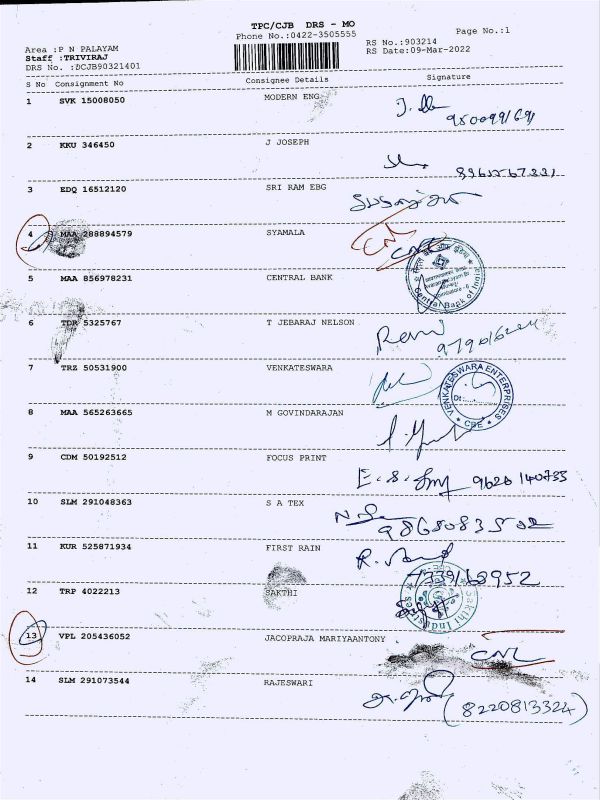 TPC/CJB DRS - MO
Phone No.:0422-3505555
Page No.:1
Area :P N PALAYAM
RS No.:903214
Staff :TRIVIRAJ
RS Date:09-Mar-2022
DRS No. :DCJB90321401
S No Consignment No Consignee Details Signature
1 SVK 15008050 MODERN ENG
2 KKU 346450 J JOSEPH
3 EDQ 16512120 SRI RAM EBG
4 MAA 288894579 SYAMALA
CNL
5 MAA 856978231 CENTRAL BANK
Central Bank of India
6 TDR 5325767 T JEBARAJ NELSON
7 TRZ 50531900 VENKATESWARA
VENKATESWARA ENTERPRISES
Dt:
CBE
8 MAA 565263665 M GOVINDARAJAN
9 CDM 50192512 FOCUS PRINT
9626 140733
10 SLM 291048363 S A TEX
11 KUR 525871934 FIRST RAIN
7339168952
12 TRP 4022213 SAKTHI
Sakthi Industries
13 VPL 205436052 JACOPRAJA MARIYAANTONY
CNL
14 SLM 291073544 RAJESWARI
(8220813324)